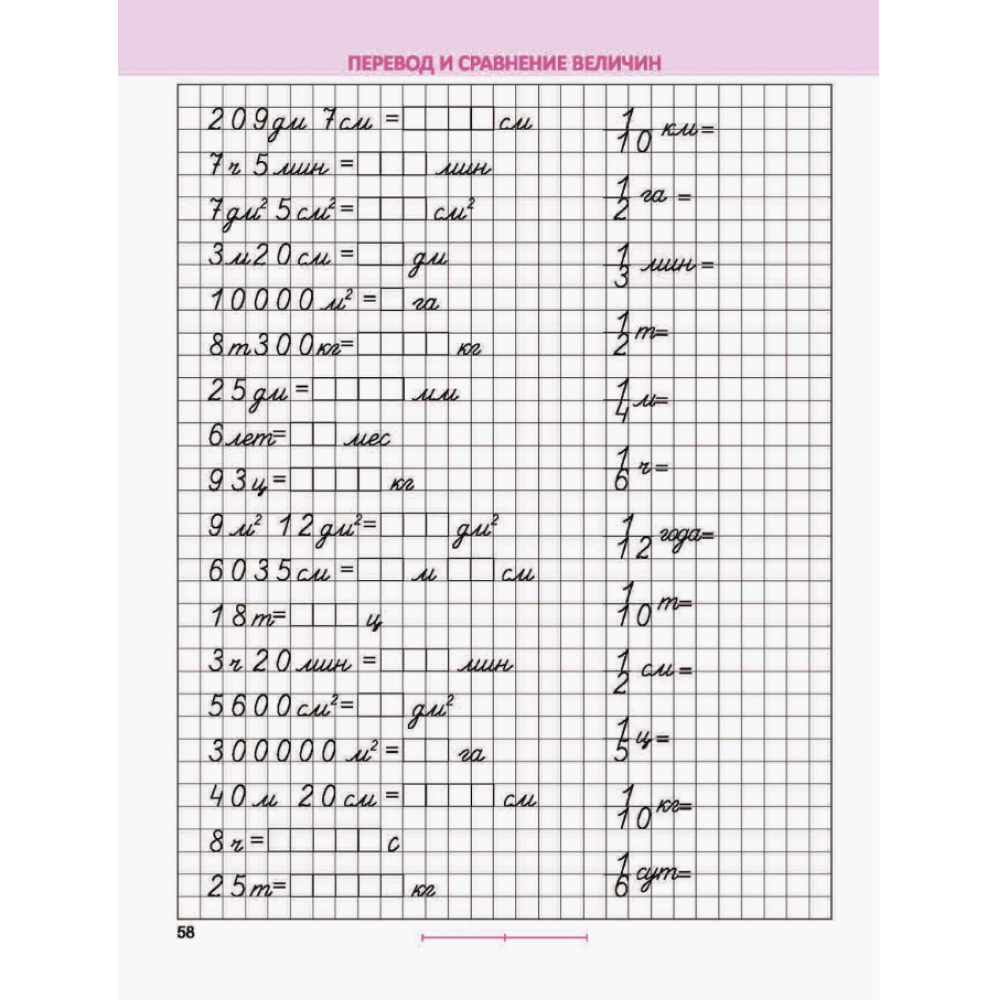 ПЕРЕВОД И СРАВНЕНИЕ ВЕЛИЧИН
209дм 7см = см
7ч 5мин = мин
7дм² 5см² = см²
3м20см = дм
10000м² = га
8т300кг= кг
25дм = мм
6лет= мес
93ц = кг
9м² 12дм²= дм²
6035см = м см
18т= ц
3ч 20мин = мин
5600см²= дм²
300000м² = га
40м 20см = см
8ч = с
25т= кг
1/10 км=
1/2 га =
1/3 мин =
1/2 т=
1/4 м=
1/6 ч=
1/12 года=
1/10 т=
1/2 см =
1/5 ц=
1/10 кг=
1/6 сут=
58